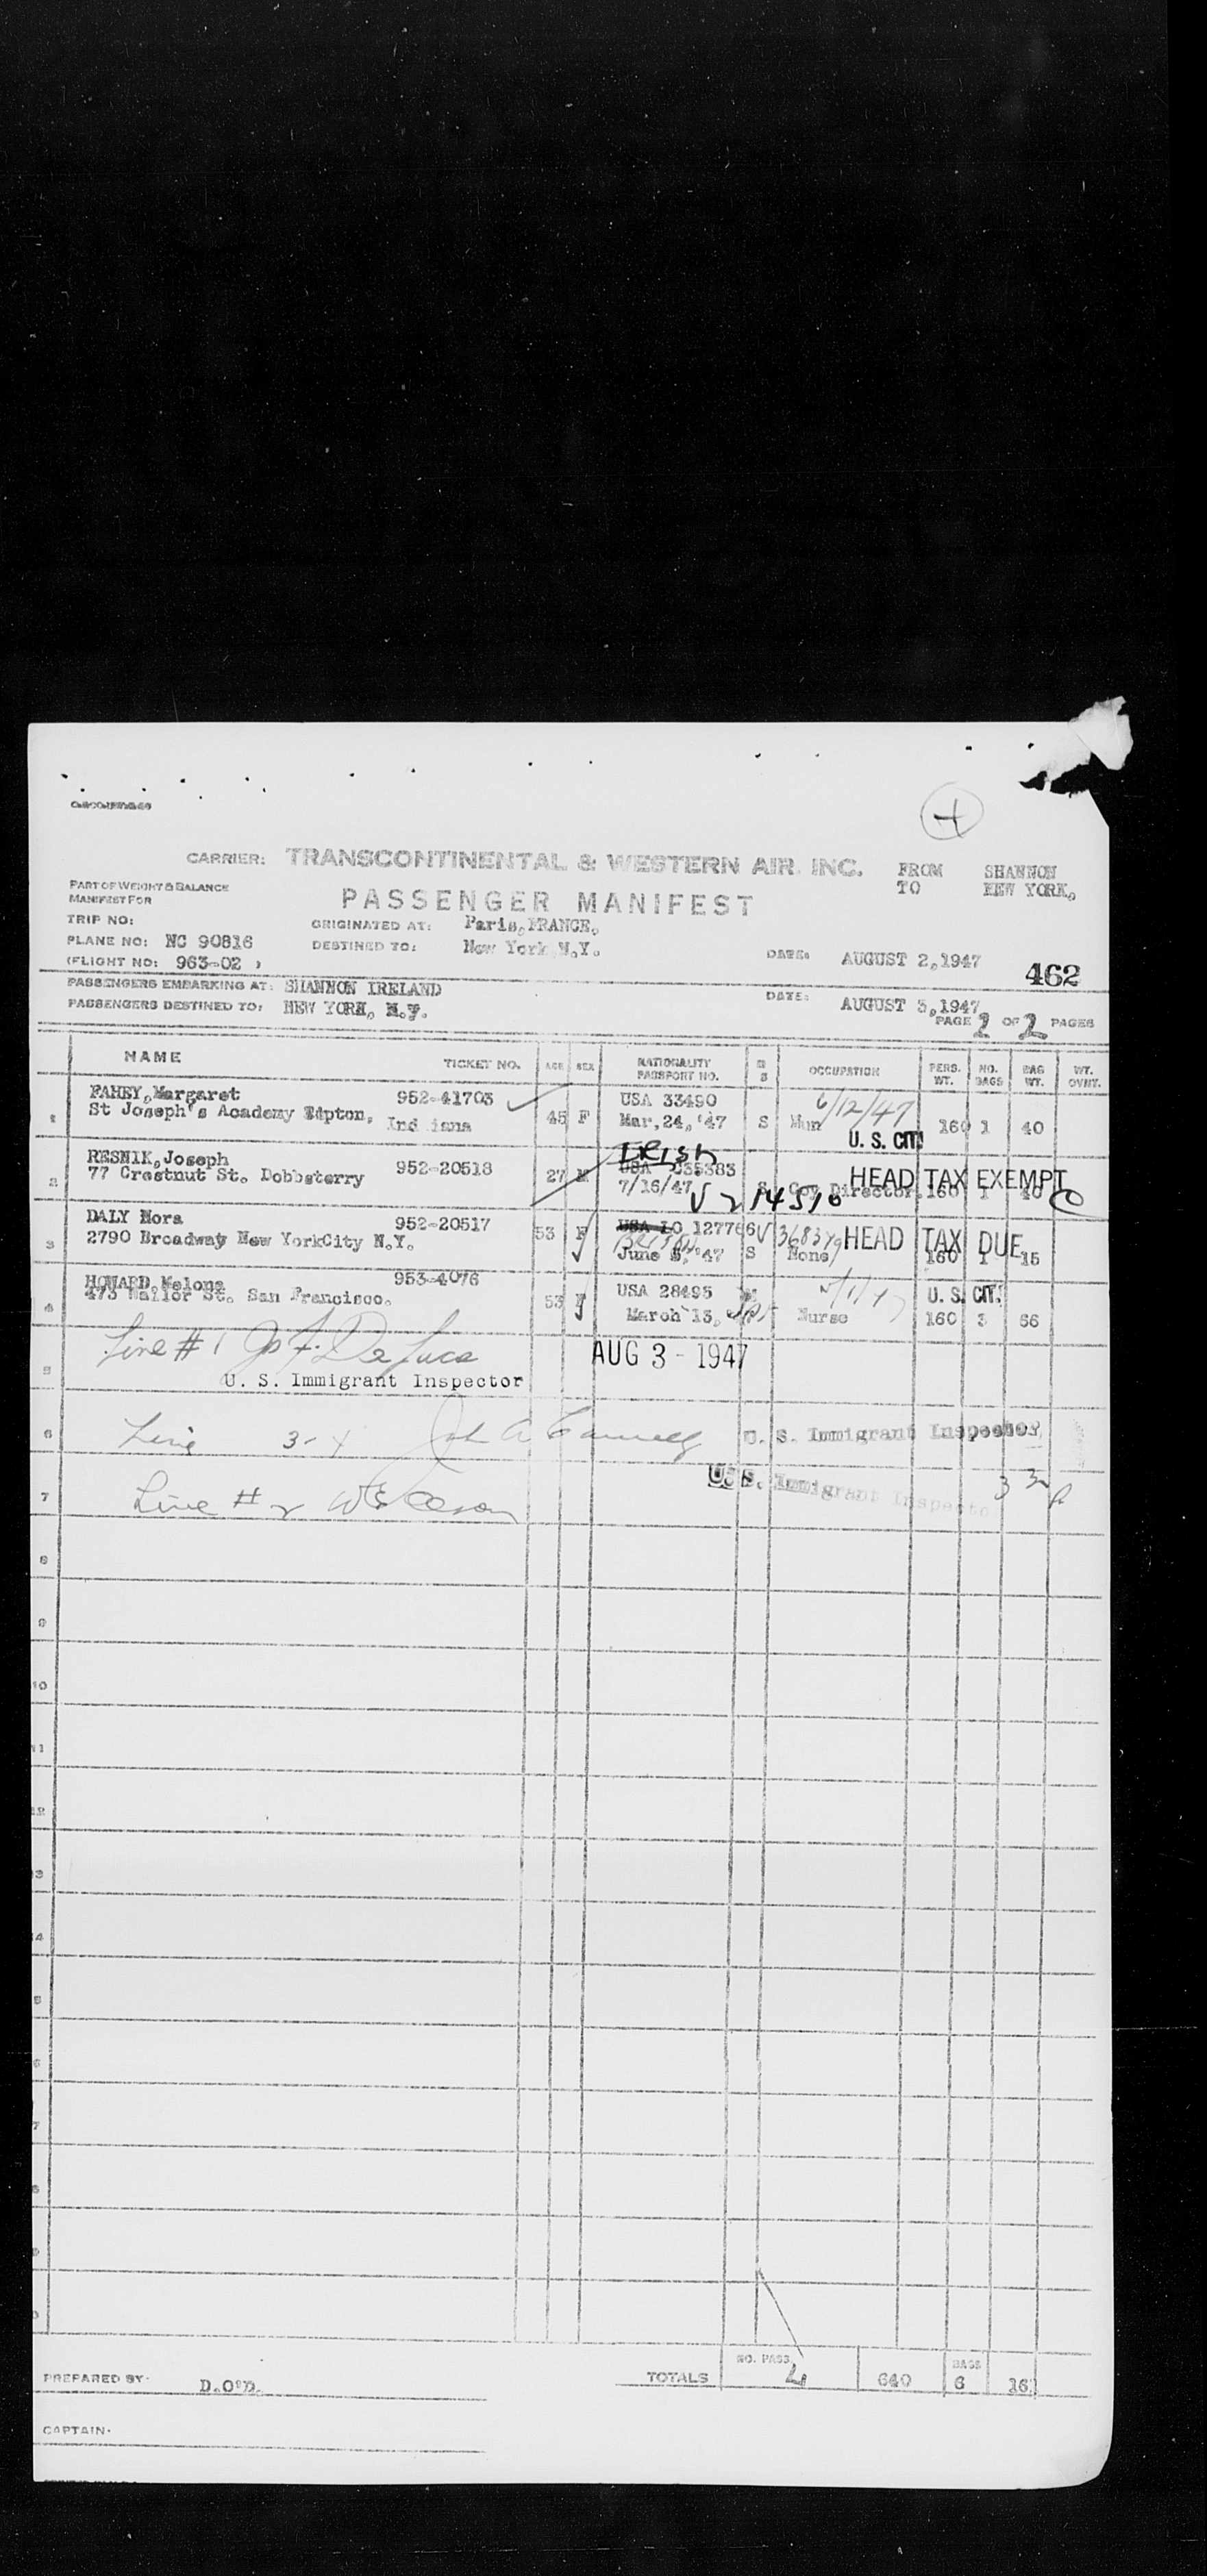 CARRIER: TRANSCONTINENTAL & WESTERN AIR. INC. FROM SHANNON
PART OF WEIGHT & BALANCE
MANIFEST FOR
PASSENGER MANIFEST TO NEW YORK,
TRIP NO: ORIGINATED AT: Paris, FRANCE,
PLANE NO: NC 90816 DESTINED TO: New York, N.Y. DATE: AUGUST 2, 1947
(FLIGHT NO: 963-02 ) 462
PASSENGERS EMBARKING AT: SHANNON IRELAND DATE: AUGUST 3, 1947
PASSENGERS DESTINED TO: NEW YORK, N.Y. PAGE 2 OF 2 PAGES
NAME TICKET NO. AGE SEX NATIONALITY PASSPORT NO. M S OCCUPATION PERS. WT. NO. BAGS BAG WT. WT. OVNT.
FAHEY, Margaret 952-41703 USA 33490 6/12/47
1 St Joseph's Academy Tipton, Indiana 45 F Mar, 24, '47 S Nun 160 1 40
U. S. CIT.
IRISH
RESNIK, Joseph 952-20518 USA HEAD TAX EXEMPT
2 77 Crestnut St. Dobbsterry 27 M 7/16/47 S Director 160 1
DALY Nora 952-20517 USA 127766 368379 HEAD TAX DUE
3 2790 Broadway New YorkCity N.Y. 53 F June '47 S None 160 1 15
HOWARD, Melona 953-4076 USA 28495 U. S. CIT.
4 473 St. San Francisco. 53 F March 13, Nurse 160 3 66
Line # 1 De Luca AUG 3 - 1947
5 U. S. Immigrant Inspector
6 Line 3-4 John A U. S. Immigrant Inspector
U. S. Immigrant Inspecto
7 Line # 2
8
9
10
11
12
13
14
15
16
17
18
19
TOTALS NO. PASS. 4 640 BAGS 6 161
PREPARED BY: D.O'D.
CAPTAIN: